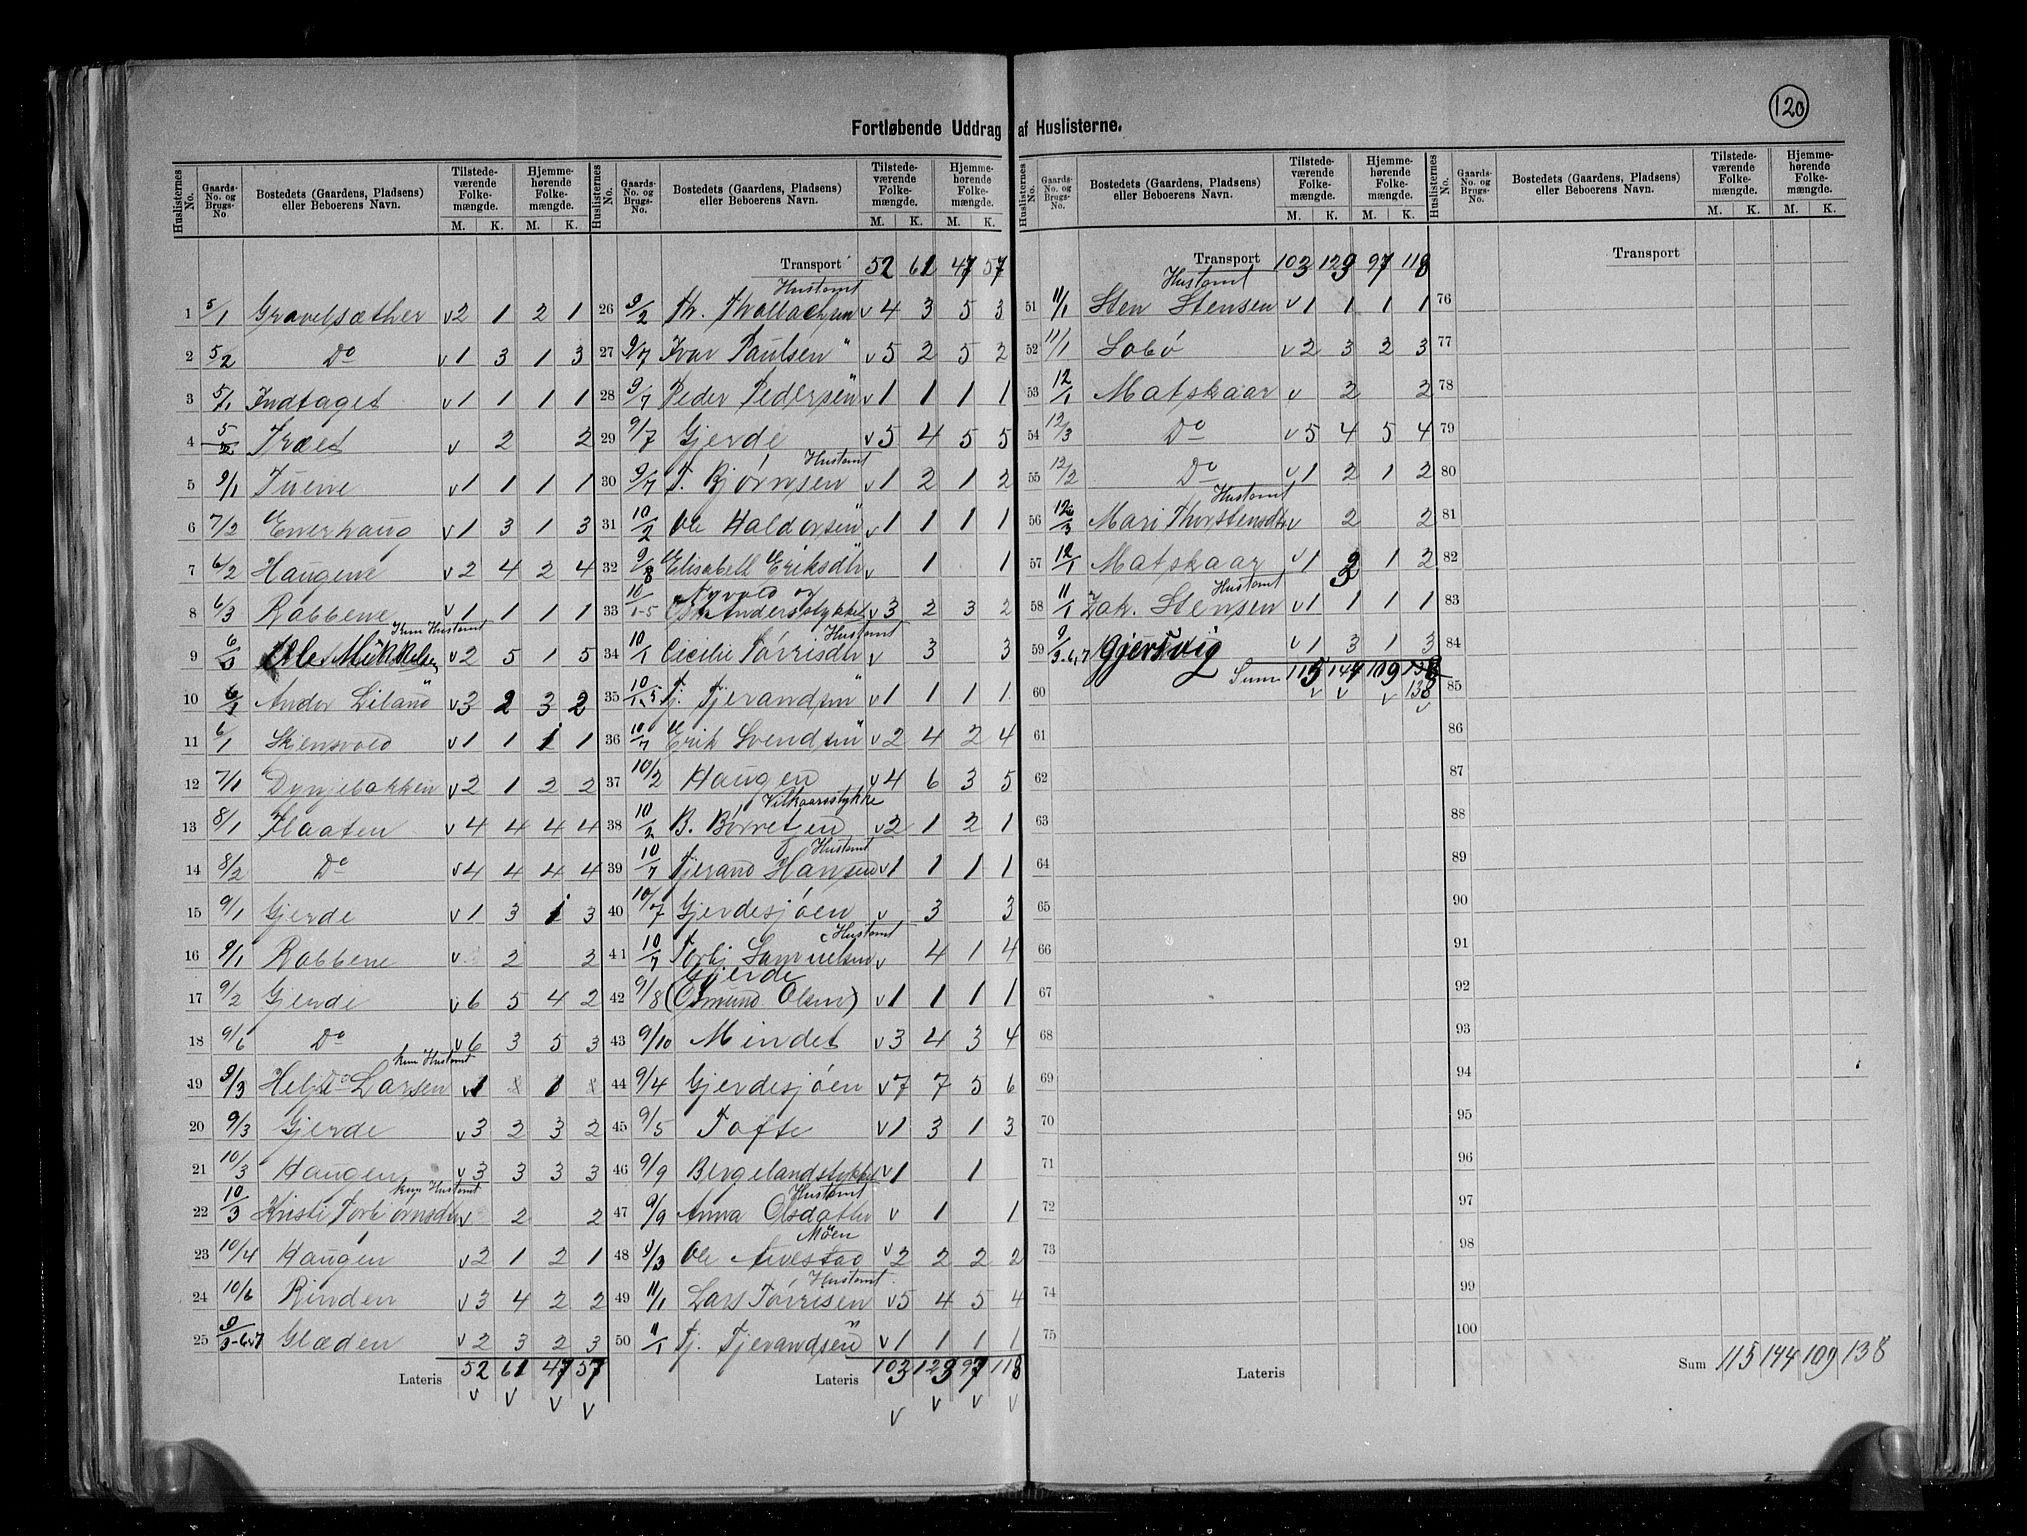 120
Fortløbende Uddrag af Huslisterne.
Huslisternes No. Gaards-No. og Brugs-No. Bostedets (Gaardens, Pladsens) eller Beboerens Navn. Tilstedeværende Folkemængde. M. K. Hjemmehørende Folkemængde. M. K.
1 5/1 Gravelsæther v 2 1 2 1
2 5/2 Do v 1 3 1 3
3 5/1 Indtaget v 1 1 1 1
4 5/2 Træet v 2 2
5 9/1 Tuene v 1 1 1 1
6 7/2 Enerhaug v 1 3 1 3
7 6/2 Haugene v 2 4 2 4
8 6/3 Rabbene v 1 1 1 1
9 6/3 Ole Mikkelsen kun Hustomt v 2 5 1 5
10 6/1 Ander Liland " v 3 2 3 2
11 6/1 Skiensvold v 1 1 1 1
12 7/1 Dynjebakken v 2 1 2 2
13 8/1 Flaaten v 4 4 4 4
14 8/2 Do v 4 4 4 4
15 9/1 Gjerde v 1 3 1 3
16 9/1 Rabbene v 2 2
17 9/2 Gjerde v 6 5 4 2
18 9/6 Do v 6 3 5 3
19 9/3 Helje Larsen kun Hustomt v 1 1
20 9/3 Gjerde v 3 2 3 2
21 10/3 Haugen v 3 3 3 3
22 10/3 Kristi Torbjörnsdtr kun Hustomt v 2 2
23 10/4 Haugen v 2 1 2 1
24 10/6 Rinden v 3 4 2 2
25 9/3-6,7 Glæden v 2 3 2 3
Lateris 52 61 47 57
v v v v
Huslisternes No. Gaards-No. og Brugs-No. Bostedets (Gaardens, Pladsens) eller Beboerens Navn. Tilstedeværende Folkemængde. M. K. Hjemmehørende Folkemængde. M. K.
Transport 52 61 47 57
26 9/2 Th. Thollachsen Hustomt v 4 3 5 3
27 9/7 Ivar Paulsen " v 5 2 5 2
28 9/7 Peder Pedersen " v 1 1 1 1
29 9/7 Gjerde v 5 4 5 5
30 9/7 T. Bjørnsen Hustomt v 1 2 1 2
31 10/2 Ole Haldorsen " v 1 1 1 1
32 9/8 Elisabell Eriksdtr " v 1 1
33 10/1-5 Nyvold og Andersstykket v 3 2 3 2
34 10/1 Cicilie Tørrisdtr Hustomt v 3 3
35 10/1-5 Tj. Tjerandsen " v 1 1 1 1
36 10/7 Erik Svendsen " v 2 4 2 4
37 10/2 Haugen v 4 6 3 5
38 10/2 B. Børretzen Vilkaarsstykke v 2 1 2 1
39 10/7 Tjerand Hansen Hustomt v 1 1 1 1
40 10/7 Gjerdesjøen v 3 3
41 10/7 Torbj Samuelsen Hustomt v 4 1 4
42 9/8 Gjerde (Osmund Olsen) v 1 1 1 1
43 9/10 Mindet v 3 4 3 4
44 9/4 Gjerdesjøen v 7 7 5 6
45 9/5 Tofte v 1 3 1 3
46 9/9 Bergelandstykket v 1 1
47 9/9 Anna Olsdatter Hustomt v 1 1
48 9/3 Ole Møen v 2 2 2 2
49 11/1 Lars Tørrisen Hustomt v 5 4 5 4
50 11/1 Tj. Tjerandsen " v 1 1 1 1
Lateris 103 129 97 118
v v v v
Huslisternes No. Gaards-No. og Brugs-No. Bostedets (Gaardens, Pladsens) eller Beboerens Navn. Tilstedeværende Folkemængde. M. K. Hjemmehørende Folkemængde. M. K.
Transport 103 129 97 118
51 11/1 Sten Stensen Hustomt v 1 1 1 1
52 11/1 Sobø v 2 3 2 3
53 12/1 Matskaar v 2 2
54 12/3 Do v 5 4 5 4
55 12/2 Do v 1 2 1 2
56 12/3 Mari Thorstensdtr Hustomt v 2 2
57 12/1 Matskaar v 1 3 1 2
58 11/1 Zak. Stensen Hustomt v 1 1 1 1
59 9/3-6,7 Gjersvig v 1 3 1 3
60 Sum 115 144 109 138
138
v v v v
61
62
63
64
65
66
67
68
69
70
71
72
73
74
75
Lateris
Huslisternes No. Gaards-No. og Brugs-No. Bostedets (Gaardens, Pladsens) eller Beboerens Navn. Tilstedeværende Folkemængde. M. K. Hjemmehørende Folkemængde. M. K.
Transport
76
77
78
79
80
81
82
83
84
85
86
87
88
89
90
91
92
93
94
95
96
97
98
99
100
Sum 115 144 109 138